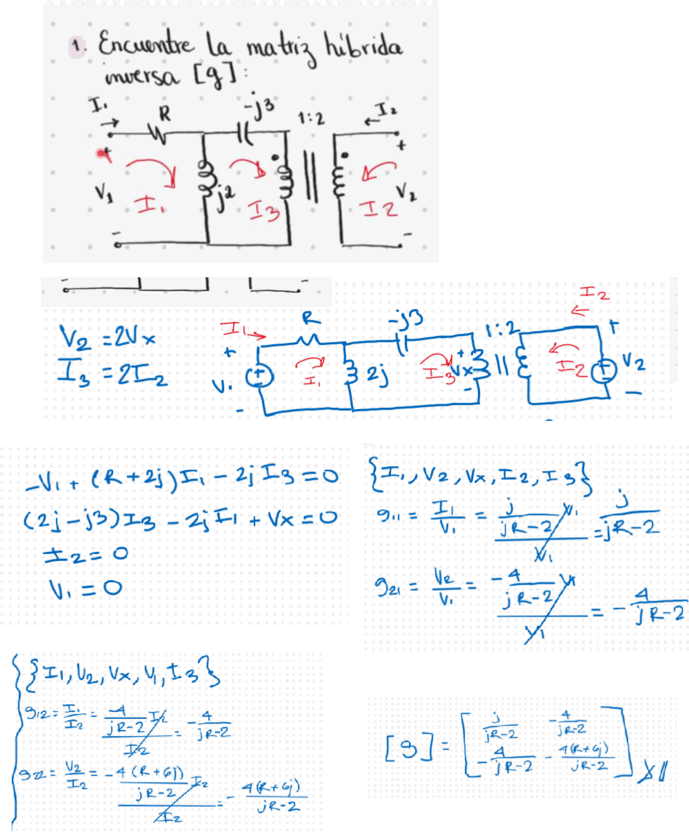 1. Encuentre la matriz híbrida
inversa [g]:
I₁ R -j3 1:2 I₂
+ +
V₁ I₁ j2 I3 I2 V₂
- -
V₂ = 2Vx
I₃ = 2I₂
I₁ R -j3 1:2 I2
+ + +
V₁ I₁ 2j I3 Vx I2 V2
- - -
-V₁ + (R+2j)I₁ - 2j I3 = 0
(2j-j3)I3 - 2jI1 + Vx = 0
I2 = 0
V₁ = 0
{I₁, V2, Vx, I2, I3}
g₁₁ = I₁/V₁ = j/(jR-2) V₁ / V₁ = j/(jR-2)
g₂₁ = V2/V₁ = -4/(jR-2) V₁ / V₁ = -4/(jR-2)
{I₁, V2, Vx, V₁, I3}
g12 = I₁/I2 = -4/(jR-2) I2 / I2 = -4/(jR-2)
g22 = V2/I2 = -4(R+6j)/(jR-2) I2 / I2 = -4(R+6j)/(jR-2)
[g] = [ j/(jR-2) -4/(jR-2)
-4/(jR-2) -4(R+6j)/(jR-2) ]